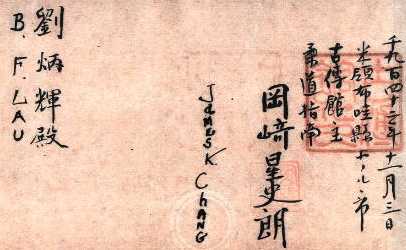 千九百四十三年十一月三日
米領布哇縣ホノルル市
古傳館主
柔道指南
岡﨑星史朗
JAMES K CHANG
劉炳輝殿
B. F. LAU